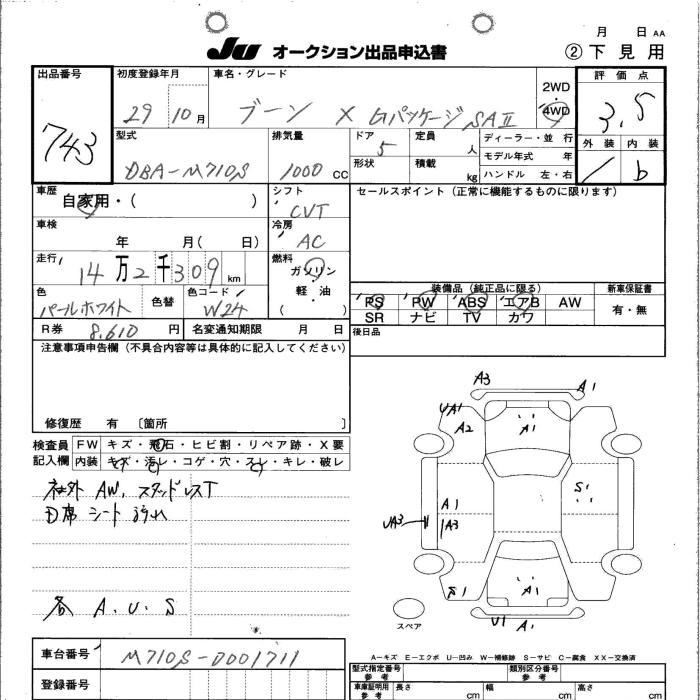 月 日 AA
JU オークション出品申込書
② 下見用
出品番号 初度登録年月 車名・グレード 評価点
743
29 10 月
ブーン X Gパッケージ SAⅡ
2WD
4WD
3.5
型式 排気量 ドア 定員 ディーラー・並行 外装 内装
DBA-M710S 1000 CC
5 人
モデル年式 年
形状 積載 kg ハンドル 左・右
b
車歴 シフト セールスポイント(正常に機能するものに限ります)
自家用・( )
CVT
車検 冷房
年 月( 日)
AC
走行 燃料
14万2千309 km
ガソリン
軽・油
( )
色 色替 色コード
パールホワイト W24
装備品(純正品に限る) 新車保証書
PS PW ABS エアB AW
SR ナビ TV カワ
有・無
R券 8,610 円 名変通知期限 月 日
後日品
注意事項申告欄(不具合内容等は具体的に記入してください)
修復歴 有 〔箇所 〕
検査員 FW キズ・飛石・ヒビ割・リペア跡・X要
記入欄 内装 キズ・汚レ・コゲ・穴・スレ・キレ・破レ
社外 AW, スタッドレスT
D席 シート 汚れ
各 A.U.S
A3 A1
UA1
A2 A1
S1
A1
UA3 A3
S1 A1
U1 A1
スペア
A-キズ E-エクボ U-凹み W-補修跡 S-サビ C-腐食 XX-交換済
車台番号 M710S-0001711
登録番号
型式指定番号 参考 類別区分番号 参考
車庫証明用 参考 長さ cm 幅 cm 高さ cm